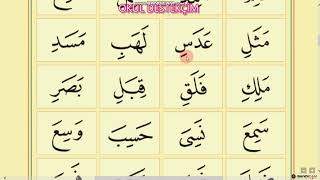 OKUL DESTEKÇİM
مَثَلِ عَدَسِ لَهَبِ مَسَدِ
مَلِكِ فَلَقِ قِبَلِ بَصَرِ
سَمِعَ نَسِيَ حَسِبَ وَسِعَ